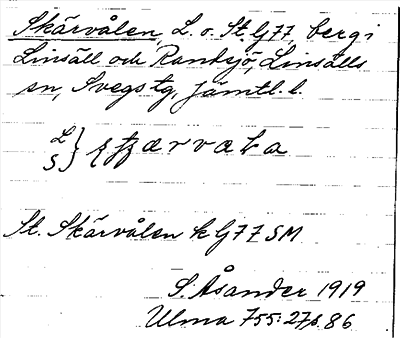 Skärvålen, L. o. St. G77, berg i
Linsäll och Ransjö, Linsälls
sn, Svegs tg, Jämtl. l.
L
S
St. Skärvålen k G77 SM
S. Åsander 1919
Ulma 755:27 s. 86